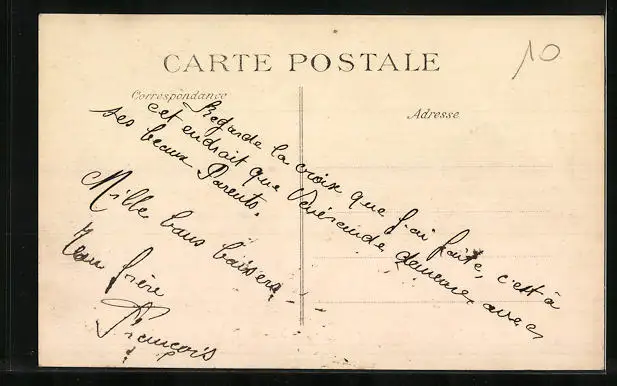 CARTE POSTALE
10
Correspondance
Adresse
Regarde la croix que j'ai faite, c'est à
cet endroit que demeure avec
ses beaux Parents.
Mille bons baisers
Ton frère
François